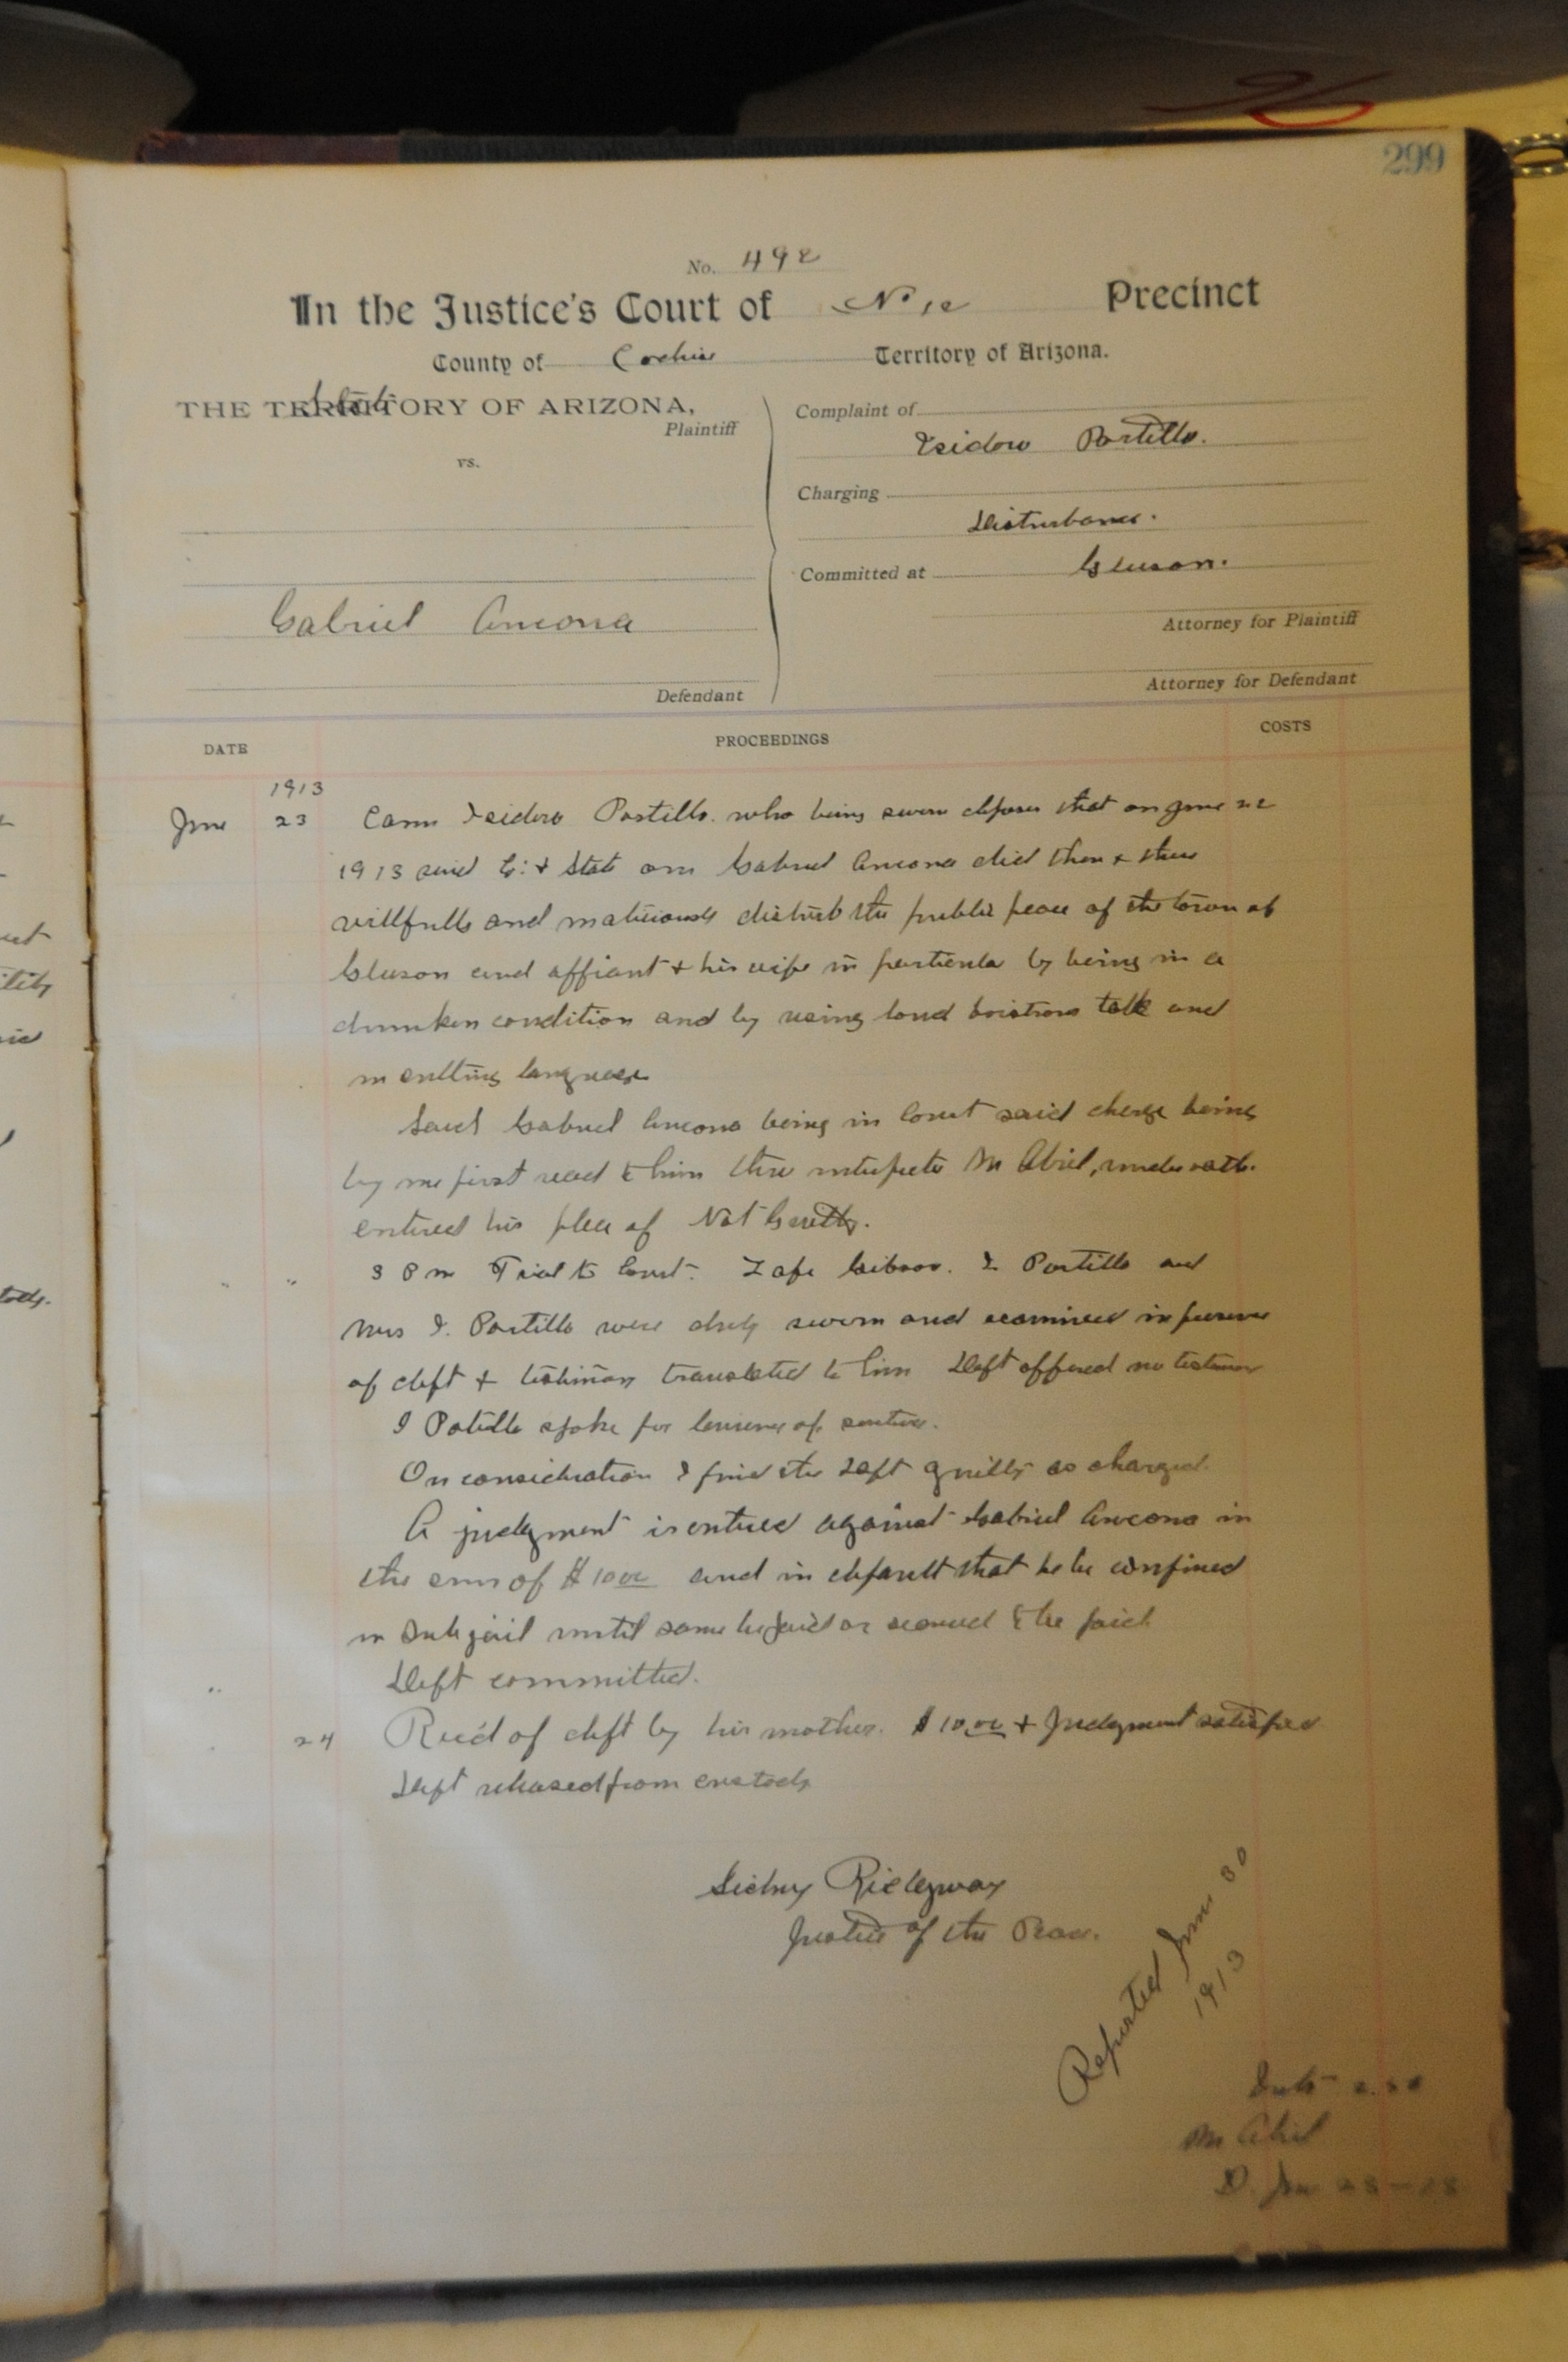 299
No. 492
In the Justice's Court of No 12 Precinct
County of Cochise Territory of Arizona.
State
THE TERRITORY OF ARIZONA,
Plaintiff
vs.
Gabriel Ancona
Defendant
Complaint of
Isidoro Portillo.
Charging
Disturbance.
Committed at Gleeson.
Attorney for Plaintiff
Attorney for Defendant
DATE PROCEEDINGS COSTS
1913
June 23 Came Isidoro Portillo. who being sworn deposes that on June 22
1913 said Co: & State one Gabriel Ancona did then & there
willfully and maliciously disturb the public peace of the town of
Gleeson and affiant & his wife in particular by being in a
drunken condition and by using loud boistrous talk and
insulting language
Said Gabriel Ancona being in Court said charge being
by me first read to him thru interpreter M Abril, under oath.
entered his plea of Not Guilty.
" " 3 P m Trial to Court. Gibson. I Portillo and
Mrs I. Portillo were duly sworn and examined in presence
of deft & testimony translated to him Deft offered no testimony
I Portillo spoke for leniency of sentence.
On consideration I find the Deft guilty as charged.
A judgment is entered against Gabriel Ancona in
the sum of $10 00 and in default that he be confined
in Sub jail until same be paid or secured to be paid
" Deft committed.
24 Rec'd of deft by his mother. $10.00 & Judgment satisfied
Deft released from custody
Sidney Ridgway
Justice of the Peace.
Reported June 30
1913
Int 2.50
M Abril